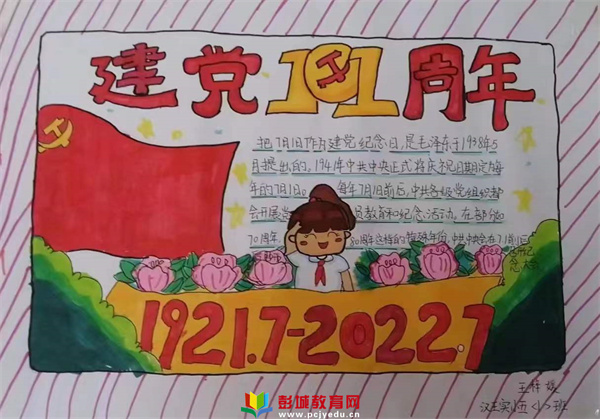 建党101周年
把7月1日作为建党纪念日,是毛泽东于1938年5
月提出的。1941年中共中央正式将庆祝日期定为每
年的7月1日。 每年7月1日前后,中共各级党组织都
会开展党 员教育和纪念活动。在部分如
70周年 80周年这样的特殊年份,中共中央会在7月1日
纪
念大会
1921.7-2022.7
王梓
汉王实小五〈1〉班
彭城教育网
www.pcjyedu.cn